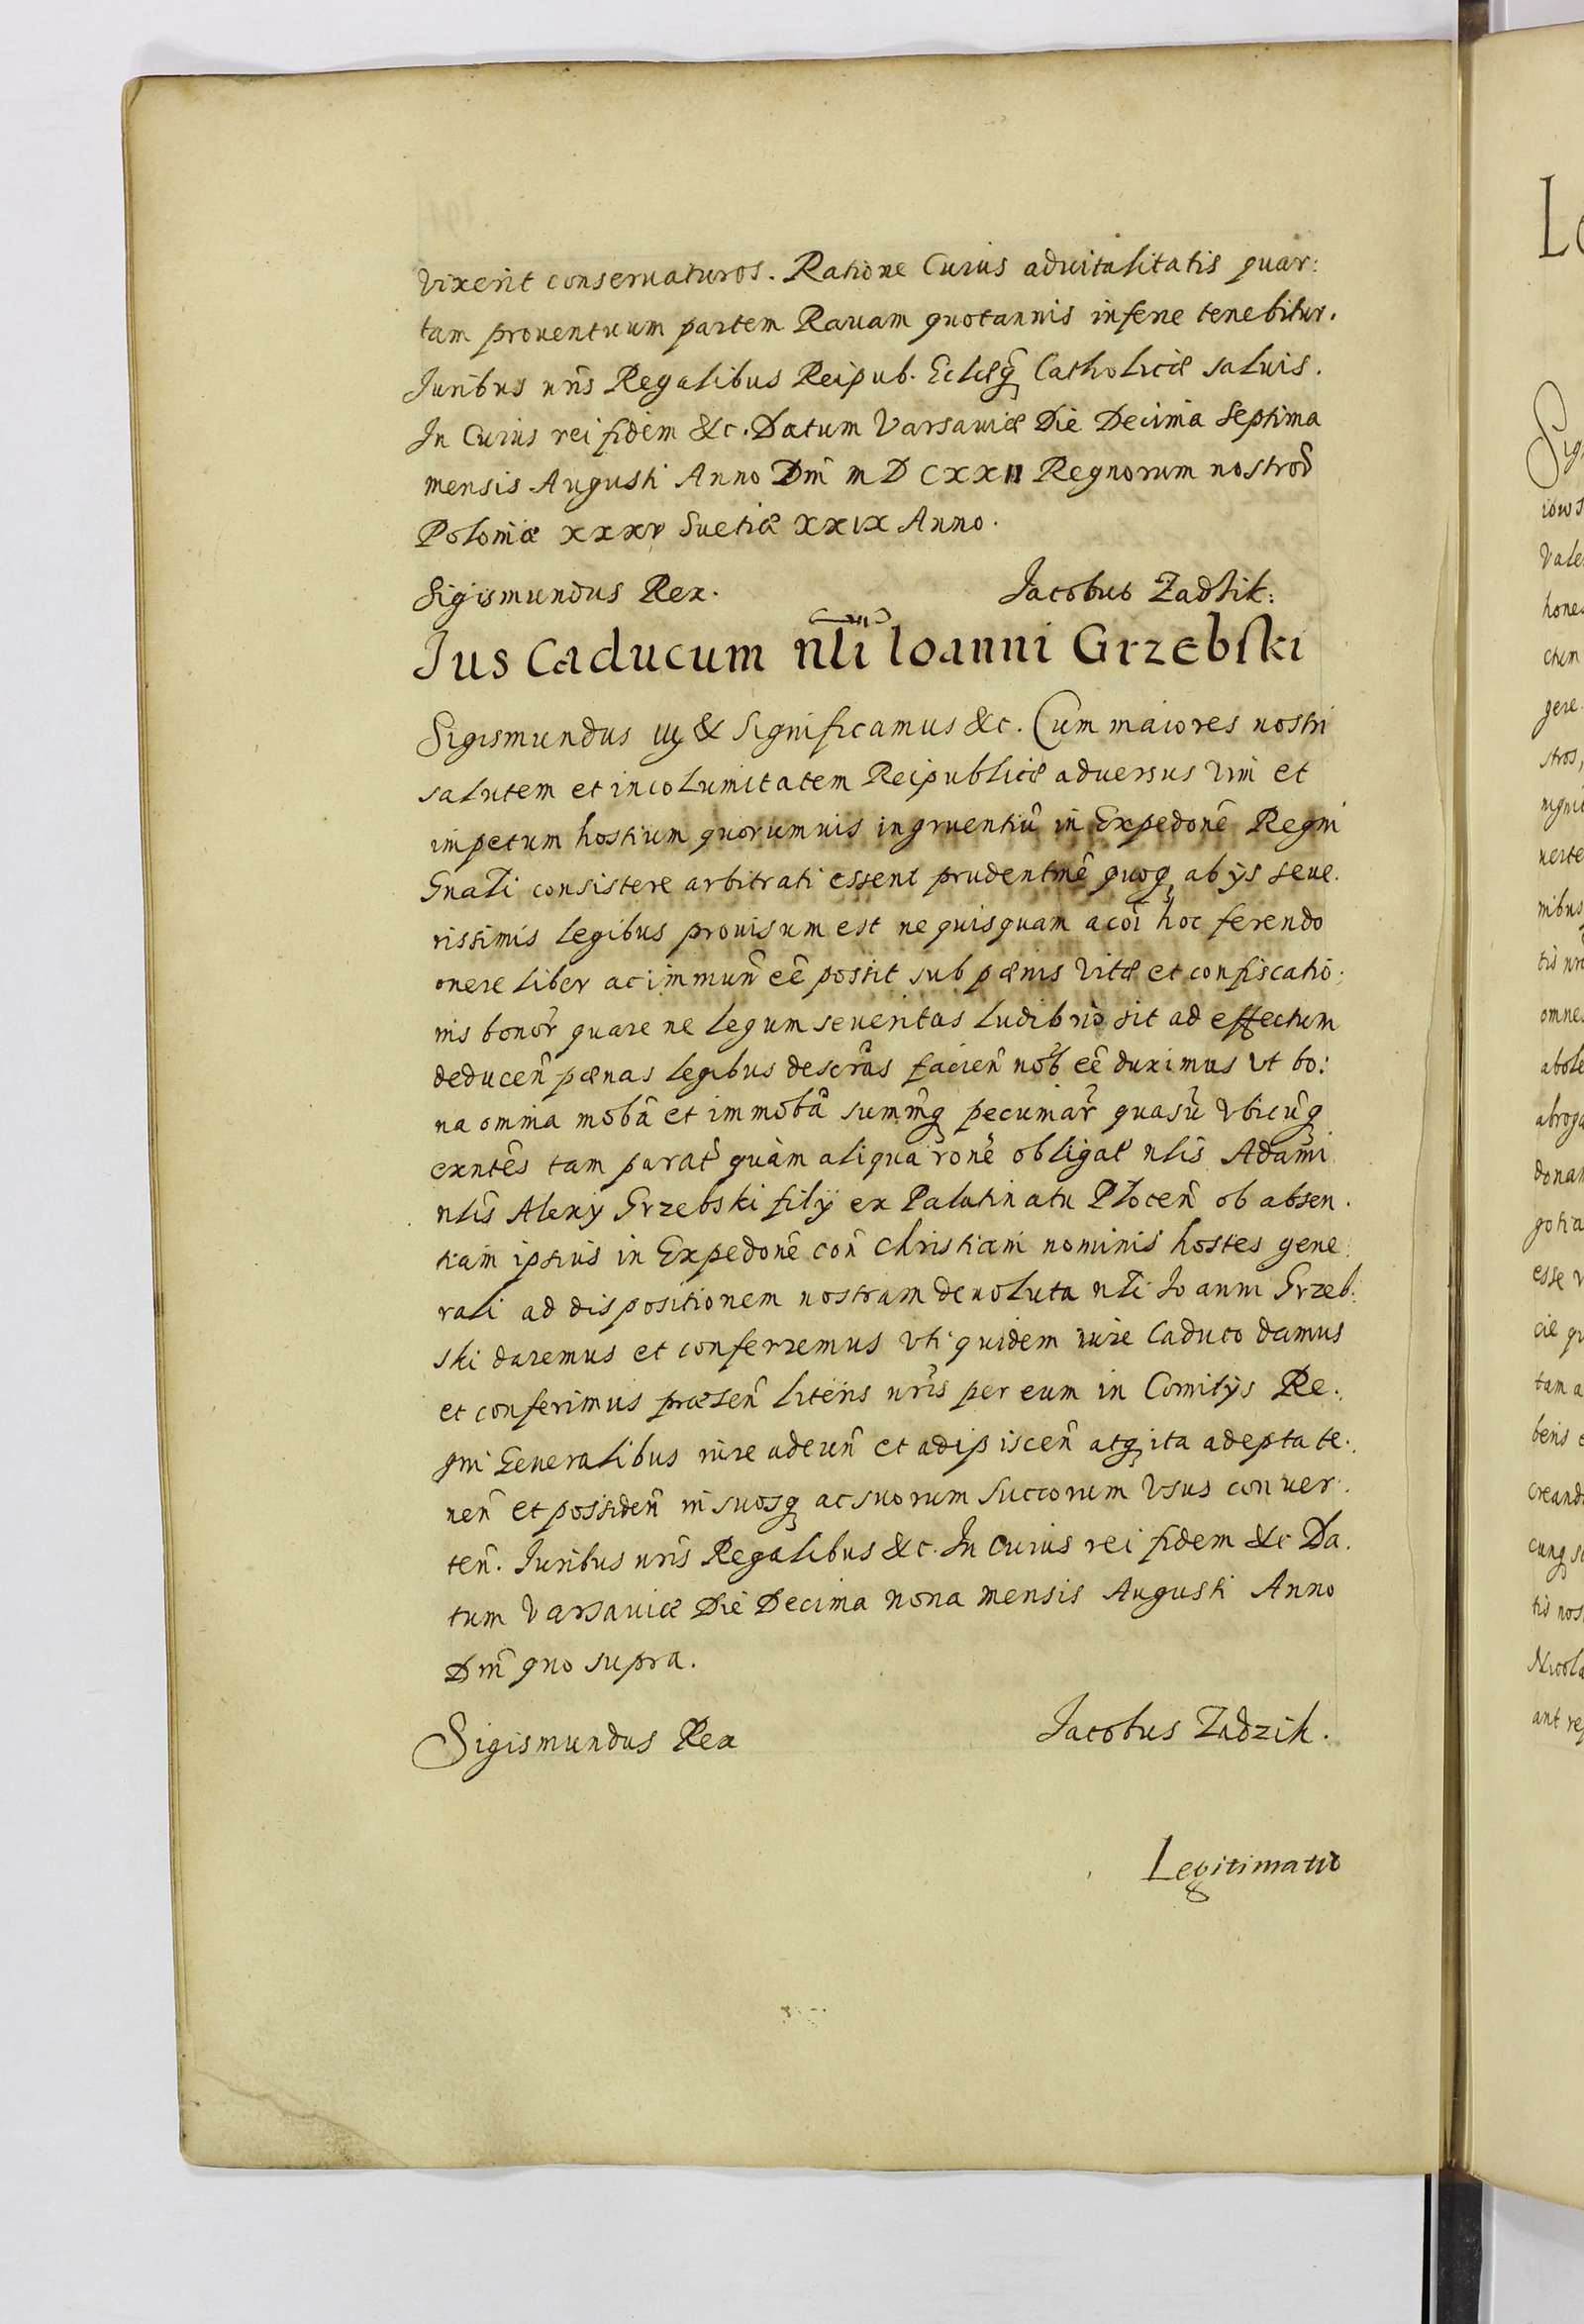 vixerit conseruaturos. Ratione Cuius aduitalitatis quar:
tam prouentuum partem Rauam quotannis inferre tenebitur.
Iuribus nris Regalibus Reipub. Eclięq Catholicæ saluis.
In Cuius rei fidem &c. Datum Varsauiæ Die Decima Septima
mensis Augusti Anno Dni M D C X X II Regnorum nostror
Poloniæ XXXV Suetiæ XXIX Anno.
Sigismundus Rex. Jacobus Zadsik:
Jus Caducum nli Ioanni Grzebski
Sigismundus IIj & Significamus &c. Cum maiores nostri
salutem et incolumitatem Reipublicæ aduersus vim et
impetum hostium quorumuis ingruentiũ in Expedonẽ Regni
Gnali consistere arbitrati essent prudentmẽ quoq ab ijs seue.
rissimis legibus prouisum est ne quisquam a coi hoc ferendo
onere liber ac immuñ eẽ possit sub pænis vitæ et confiscatio:
nis bonor quare ne legum seueritas ludibrio sit ad effectum
deduceñ pænas legibus descrãs facieñ nob eẽ duximus vt bo:
na omnia mobã et immobã summq pecuniar quasũ vbicũq
exntẽs tam parat quàm aliqua ronẽ obligat nlis Adami
nlis Alexy Grzebski filij ex Palatinatu Ploceñ ob absen.
tiam ipsius in Expedonẽ coñ Christiani nominis hostes gene:
rali ad dispositionem nostram deuoluta nli Ioanni Grzeb:
ski daremus et conferremus vti quidem iure Caduco damus
et conferimus præseñ literis nris per eum in Comitijs Re:
gni Generalibus iure adeuñ et adipisceñ atq ita adepta te:
neñ et possideñ in suosq ac suorum succorum vsus conuer:
teñ. Iuribus nris Regalibus &c. In Cuius rei fidem &c Da.
tum Varsauiæ Die Decima nona mensis Augusti Anno
Dni quo supra.
Sigismundus Rex Jacobus Zadzik.
Legitimatio